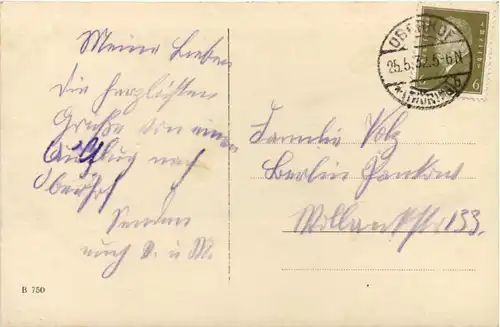 Meine Lieben
die herzlichsten
Grüße von einen
Ausflug nach
Oberhof
Senden
euch
B 750
OBERHOF
25.5.32.5-6N
(THÜRING)
6
Familie Volz
Berlin Pankow
Wollankstr 133.